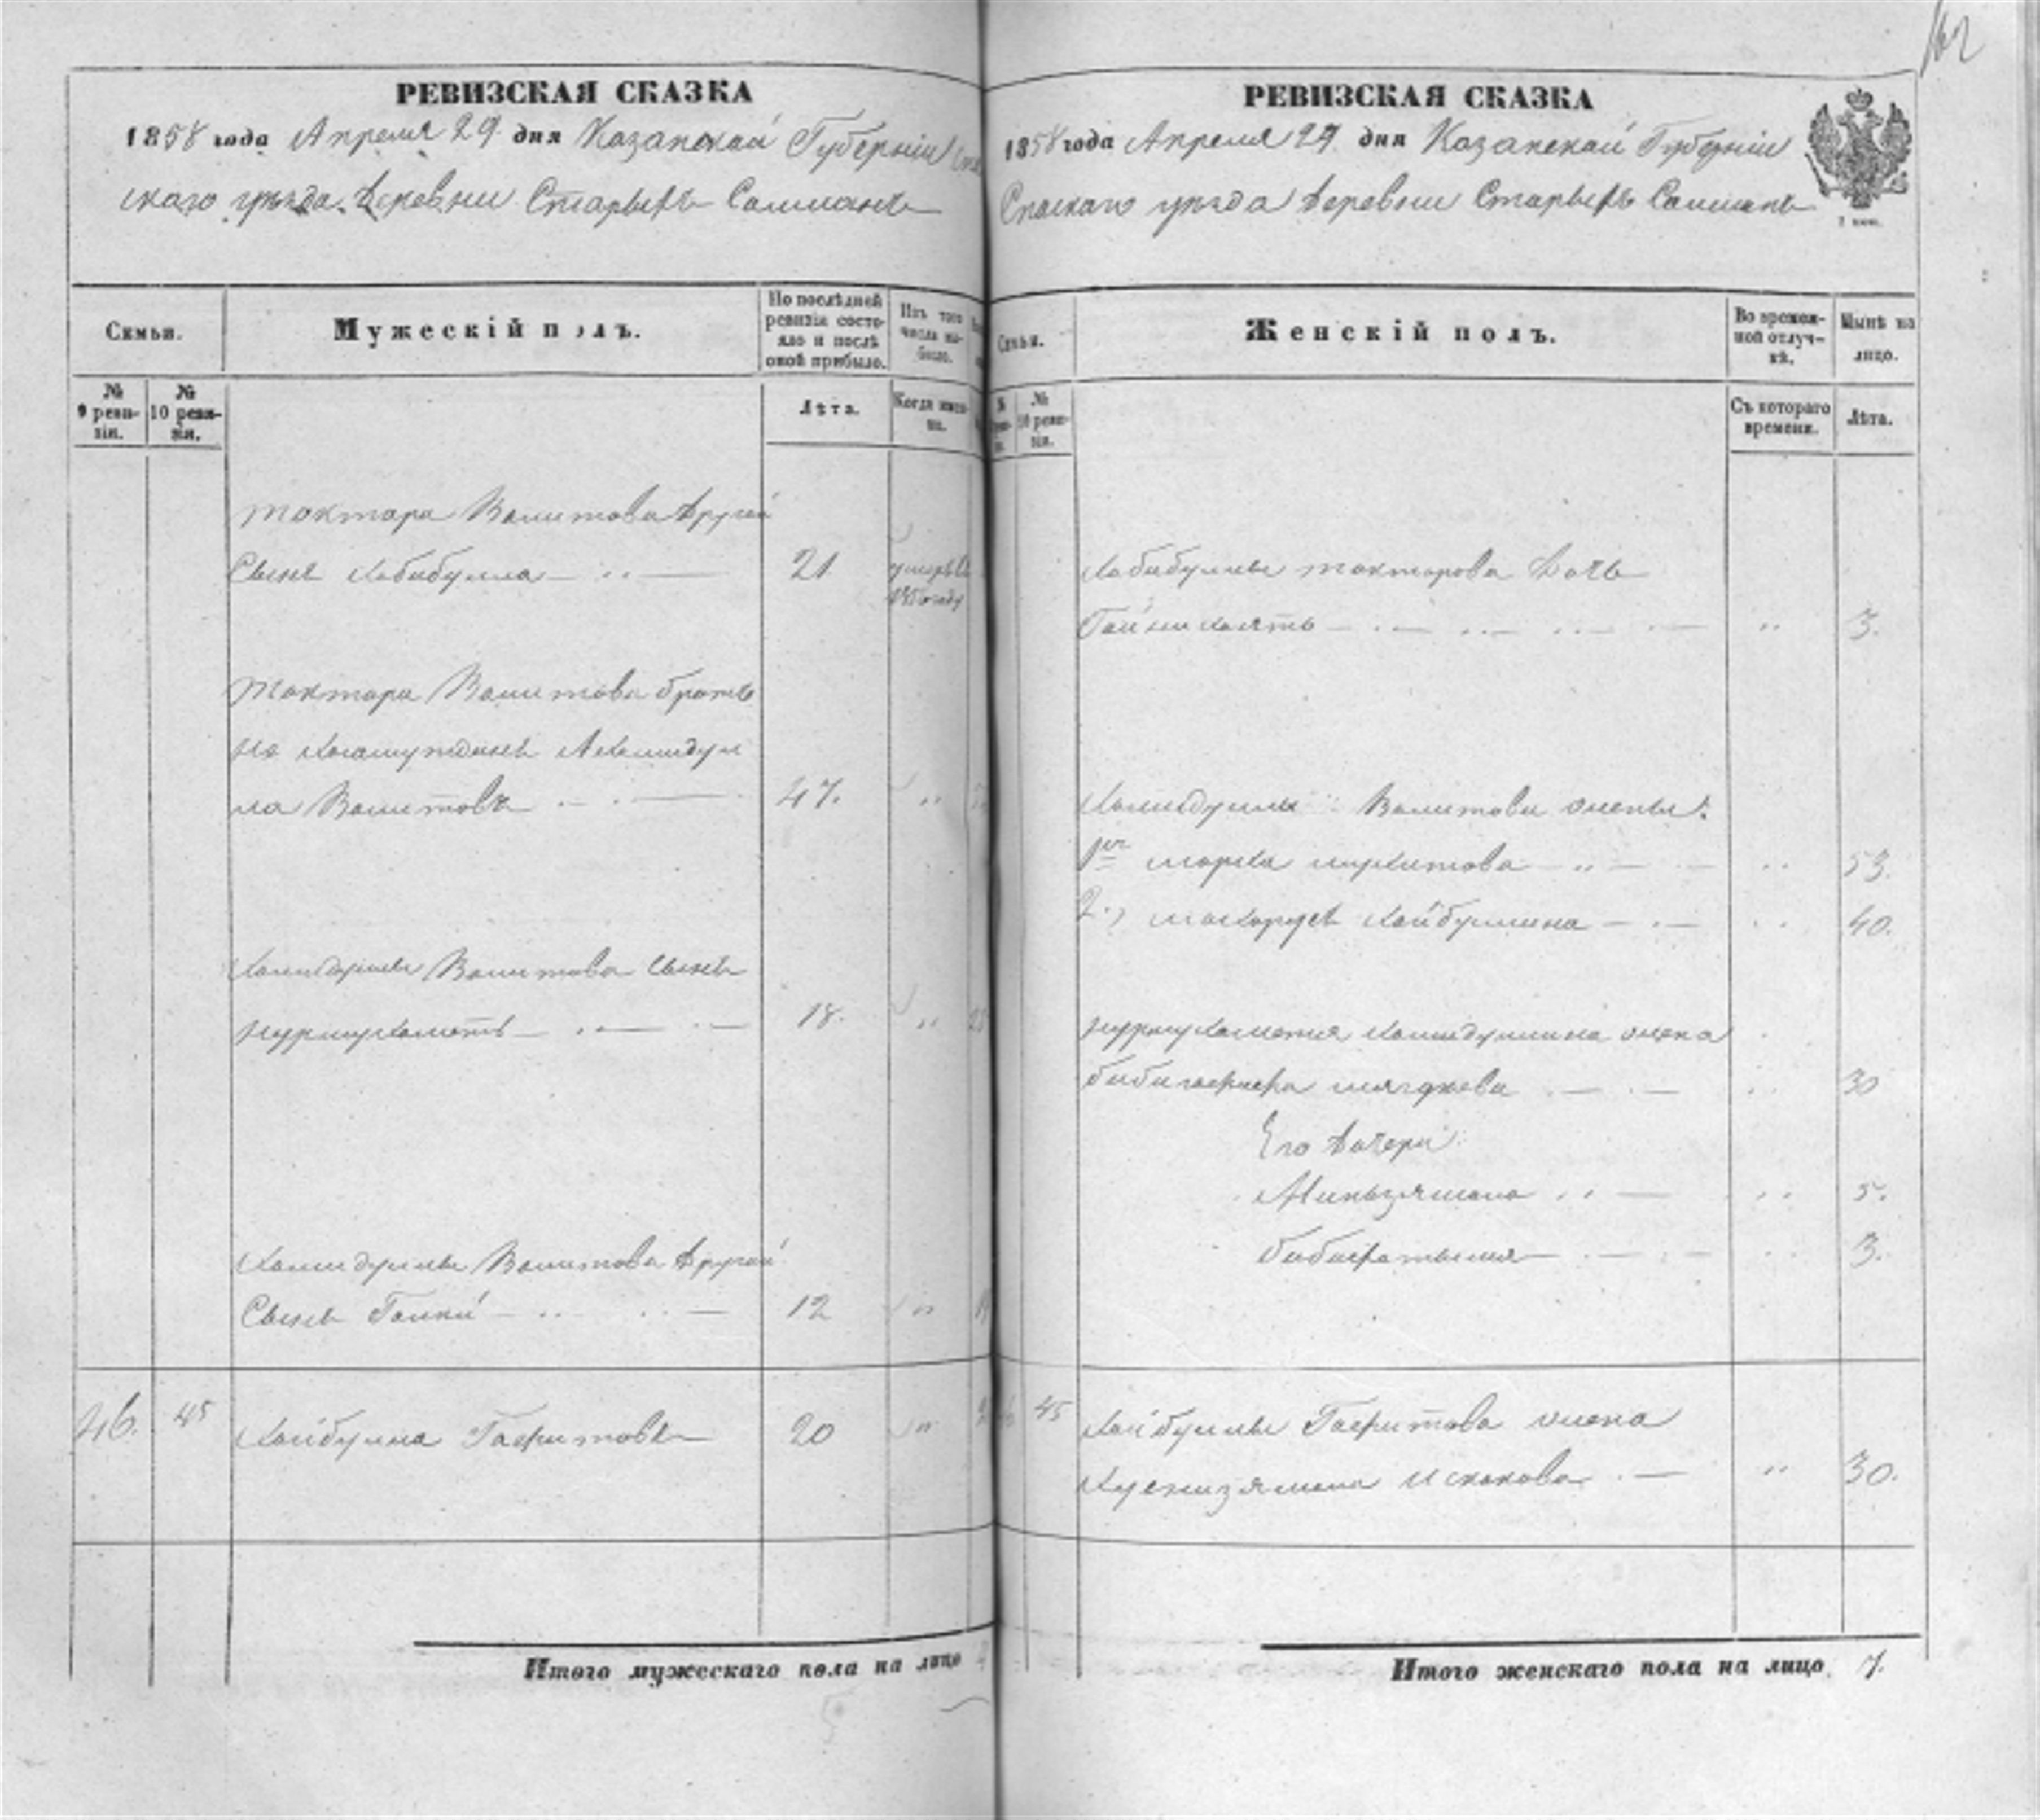 РЕВИЗСКАЯ СКАЗКА
1858 года Апреля 29 дня Казанской Губерніи
скаго уѣзда деревни Старыхъ Салманъ
Семьи.
Мужескій полъ.
По послѣдней ревизіи состояло и послѣ оной прибыло.
Изъ того числа выбыло.
№ 9 ревизіи.
№ 10 ревизіи.
Лѣта.
Когда именно.
Токтара Валитова другой
Сынъ Хабибулла 21 умеръ въ
Токтара Валитова братъ
ла Валитовъ 47.
Хамидуллы Валитова сынъ
Нурмухаметъ 18.
Хамидуллы Валитова другой
Сынъ 12
46. 45 Хайбулла Гафитовъ 20
Итого мужескаго пола на лицо
162
РЕВИЗСКАЯ СКАЗКА
1858 года Апреля 29 дня Казанской Губерніи
Спаскаго уѣзда деревни Старыхъ Салманъ
Семьи.
Женскій полъ.
Во временной отлучкѣ.
Нынѣ на лицо.
№ 10 ревизіи.
Съ котораго времени.
Лѣта.
Хабибуллы Токтарова дочь
3.
Хамидуллы Валитова жены:
1я 53.
2.) Хайбуллина 40.
Нурмухаметя Хамидуллина жена
30
Его дочери:
Миньзямала 5.
3.
45 Хайбуллы Гафитова жена
Хуснизямала Искакова 30.
Итого женскаго пола на лицо 7.